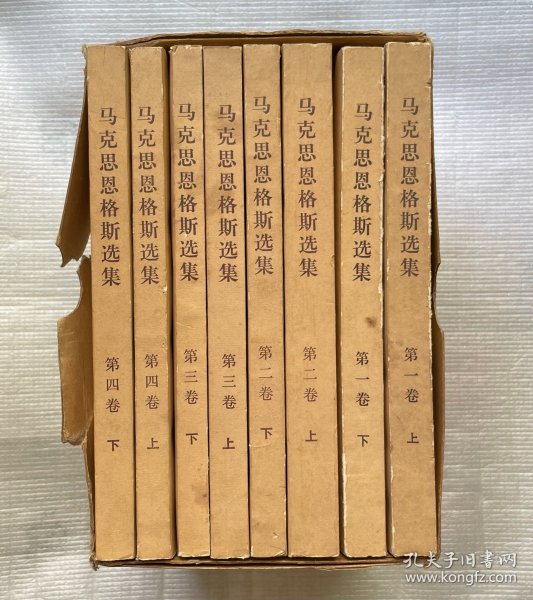 马克思恩格斯选集 第四卷 下
马克思恩格斯选集 第四卷 上
马克思恩格斯选集 第三卷 下
马克思恩格斯选集 第三卷 上
马克思恩格斯选集 第二卷 下
马克思恩格斯选集 第二卷 上
马克思恩格斯选集 第一卷 下
马克思恩格斯选集 第一卷 上
孔夫子旧书网
www.kongfz.com